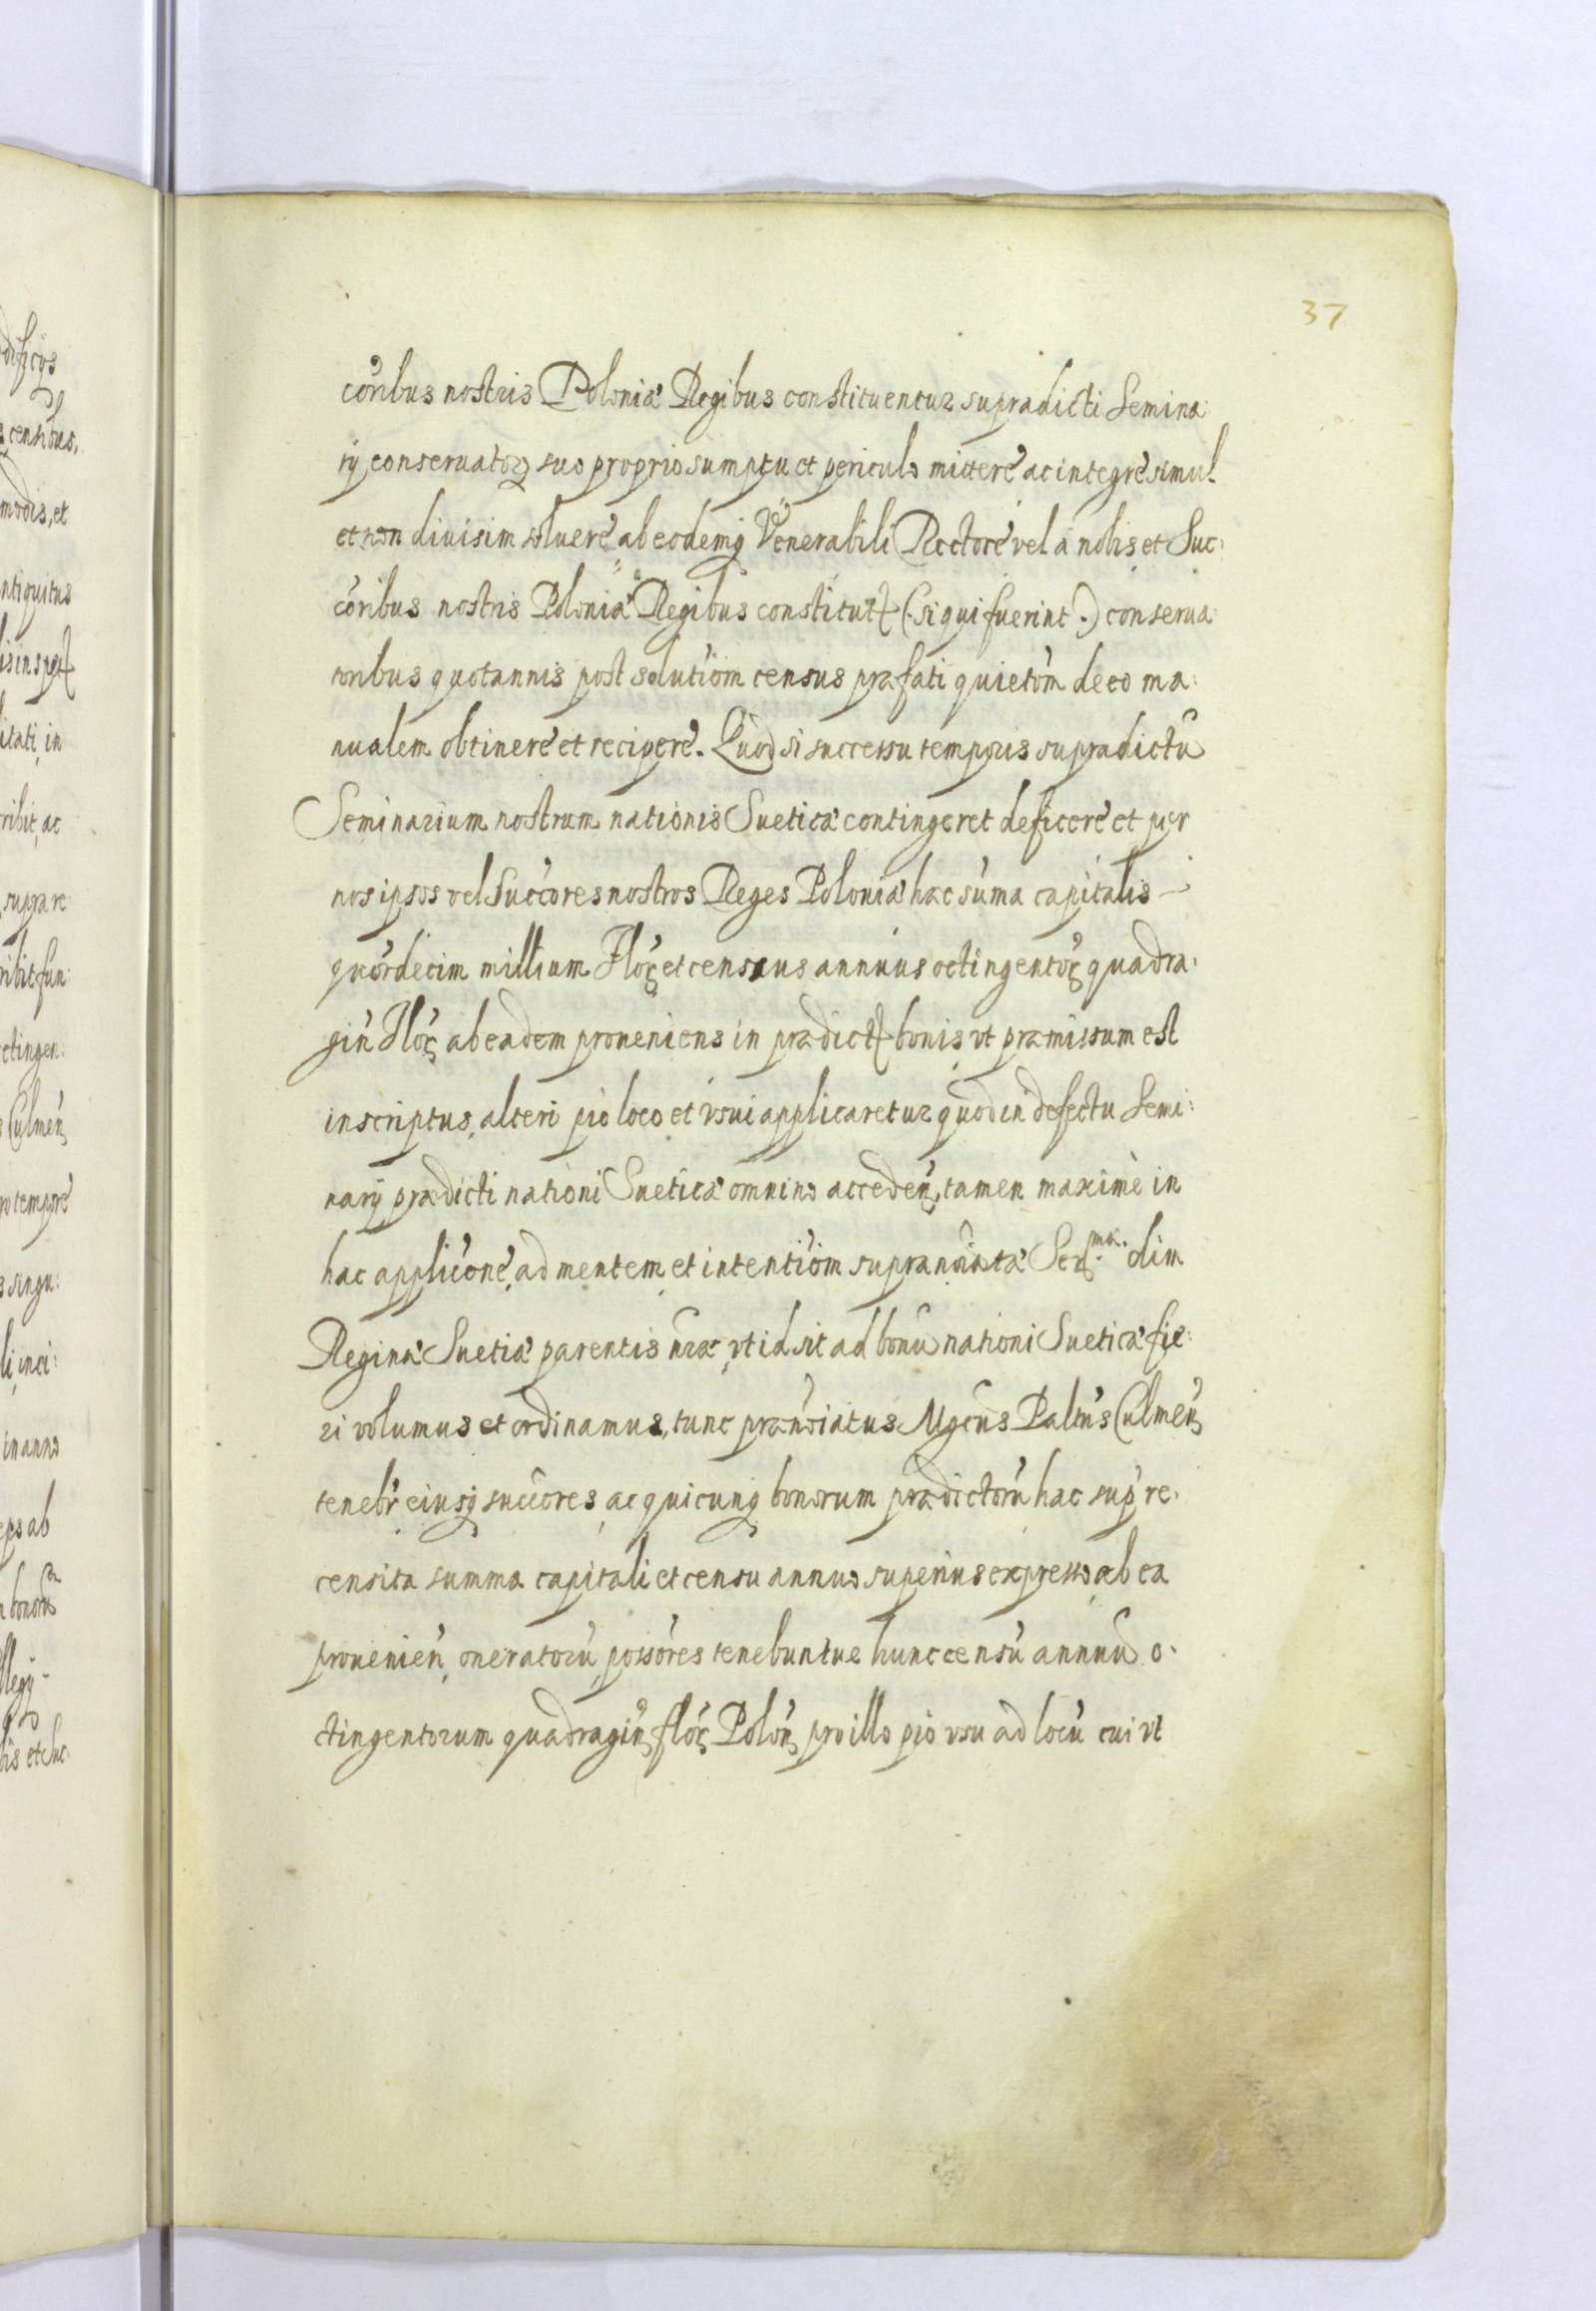 37
córibus nostris Poloniæ Regibus constituentur supradicti Semina:
rij conseruatores suo proprio sumptu et periculo mittere ac integre simul
et non diuisim soluere ab eodemq Venerabili Rectore vel à nobis et Suc:
córibus nostris Poloniæ Regibus constitut (:si qui fuerint:) conserua:
toribus quotannis post solutióm census præfati quietóm de eo ma:
nualem obtinere et recipere. Quod si successu temporis supradictũ
Seminarium nostrum nationis Sueticæ contingeret deficere et per
nos ipsos vel Succóres nostros Reges Poloniæ hæc súma capitalis
quórdecim millium Flór et census annuus octingentór quadra:
giń Flór ab eadem proueniens in prædict bonis, vt præmissum est
inscriptus, alteri pio loco et vsui applicaretur quod in defectu Semi:
narij prædicti nationi Sueticæ omnino acceden, tamen maximè in
hac applicóne, ad mentem et intentióm supranóiatæ Ser.mæ olim
Reginæ Suetiæ parentis nræ, vt id sit ad bonũ nationi Sueticæ fie:
ri volumus et ordinamus, tunc prænóiatus Mgcus Paltńs Culmeń
tenebr eiusq succóres, ac quicunq bonorum prædictorũ hac sup re:
censita summa capitali et censu annuo superius expresso, ab ea
prouenień, oneratorũ possóres tenebuntur hunc censũ annuũ o:
ctingentorum quadragiń, flór Polóń, pro illo pio vsu ad locũ cui vt
ædificijs
censibus,
modis, et
antiquitus
itati, in
ribit, ac
supra re
ribit, fun:
octingen:
Culmeń
tempore
singu:
in anno
ab
bonorũ
llegij
et Suc: